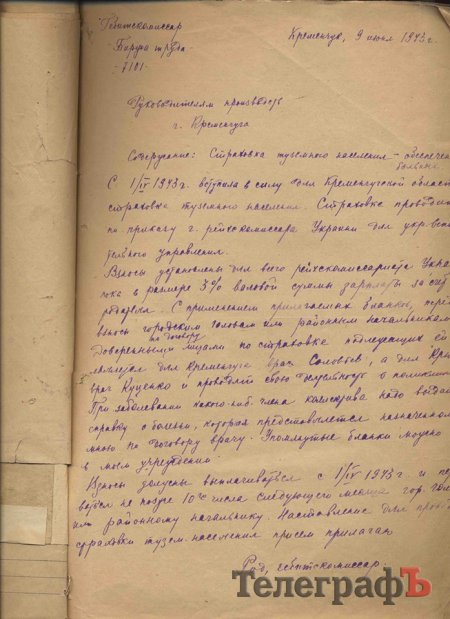 Гебитскомиссар
Биржа труда
-7101-
Кременчуг, 9 июля 1943 г.
Руководителям производств
г. Кременчуга
Содержание: Страховка туземного населения - обеспечен
больных
С 1/IV 1943 г. вступила в силу для Кременчугской област
страховка туземного населения. Страховка проводит
по приказу г. рейхскомиссара Украины для
управления.
Взносы установлены для всего рейхскомиссариата Укра
пока в размере 3% валовой суммы зарплаты за счёт
С применением прилагаемых бланков, пере
взносы городским головам или районным начальникам
по договору
Доверенными лицами по страховке
является для Кременчуга врач Соловьев, а для
врач Куценко и проводят свою деятельность в поликлин
При заболевании какого-либ. члена коллектива надо выдав
справку о болезни, которая представляется назначенном
мною по договору врачу. Упомянутые бланки можно
в моем учреждении.
Взносы должны выплачиваться с 1/IV 1943 г. и пе
не позже 10го числа следующего месяца гор. голо
или районному начальнику. Наставление для пров
страховки тузем. населения при сем прилагаю
Род, гебитскомиссар.
ТелеграфЪ